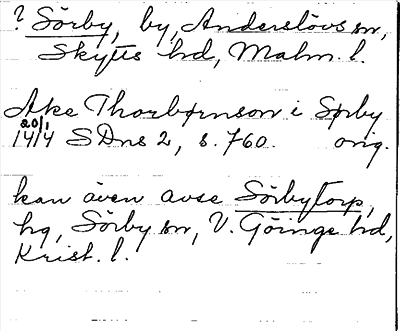 ? Sörby, by, Anderslövs sn,
Skytts hd, Malm. l.
Ake Thorbørnson i Sørby
20/1
1414 SDns 2, s. 760. orig.
kan även avse Sörbytorp,
hg, Sörby sn, V. Göinge hd,
Krist. l.